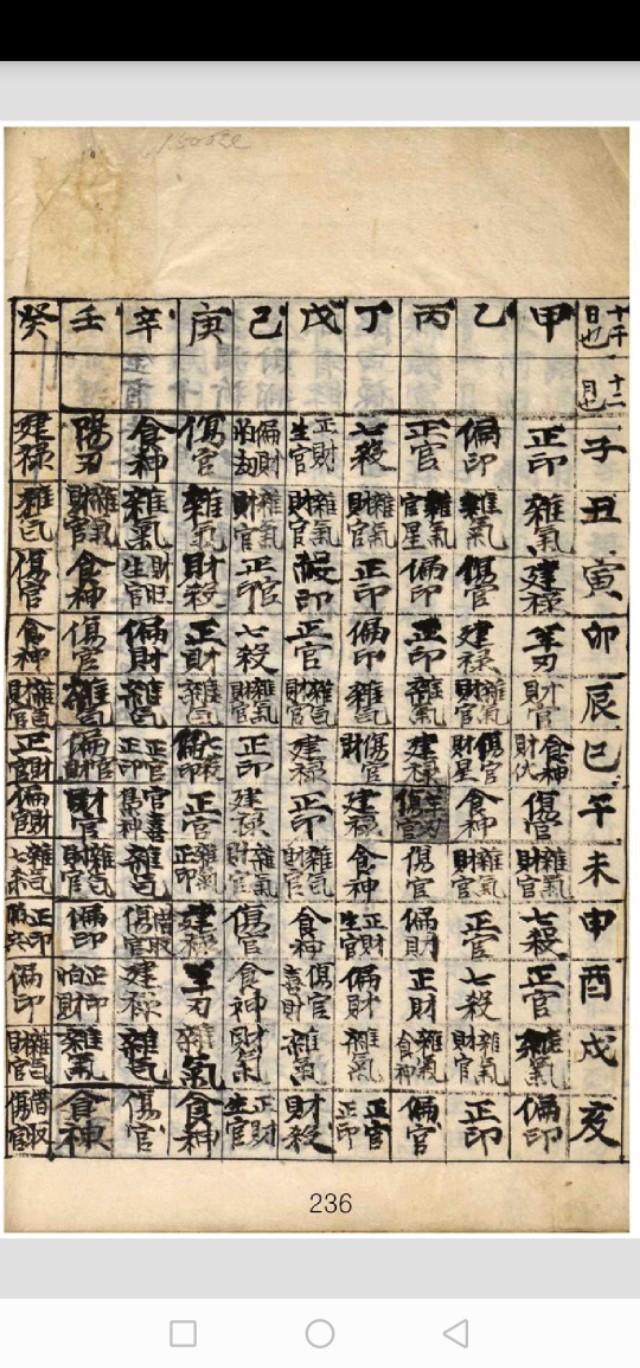 十干日也 十二月也 子 丑 寅 卯 辰 巳 午 未 申 酉 戌 亥
甲 正印 雜氣 建禄 羊刃 財官 食神財伏 傷官 雜氣財官 七殺 正官 雜氣 偏印
乙 偏印 雜氣 傷官 建禄 雜氣財官 傷官財星 食神 雜氣財官 正官 七殺 雜氣財官 正印
丙 正官 雜氣官星 偏印 正印 雜氣 建禄 羊刃傷官 傷官 偏財 正財 雜氣食神 偏官
丁 七殺 雜氣財官 正印 偏印 雜气 傷官財 建禄 食神 正財生官 偏財 雜氣 正官正印
戊 正財生官 雜氣財官 印 正官 雜气財官 建禄 正印 雜气財官 食神 傷官喜財 雜氣 財殺
己 偏財怕劫 雜氣財官 正官印 七殺 雜氣財官 正印 建禄 雜氣財官 傷官 食神 財氣 正財生官
庚 傷官 雜氣 財殺 正財 雜气 七殺偏印 正官 雜氣正印 建禄 羊刃 雜氣 食神
辛 食神 雜氣 財旺生官 偏財 雜气 正官正印 官喜神 雜气 借取傷官 建禄 雜气 傷官
壬 陽刃 雜氣財官 食神 傷官 雜气 偏財官 財官 雜气財官 偏印 正印怕財 雜氣 食神
癸 建禄 雜气 傷官 食神 雜气財官 正財官 偏財官 雜气七殺 正印 偏印 雜气財官 借取傷官
236